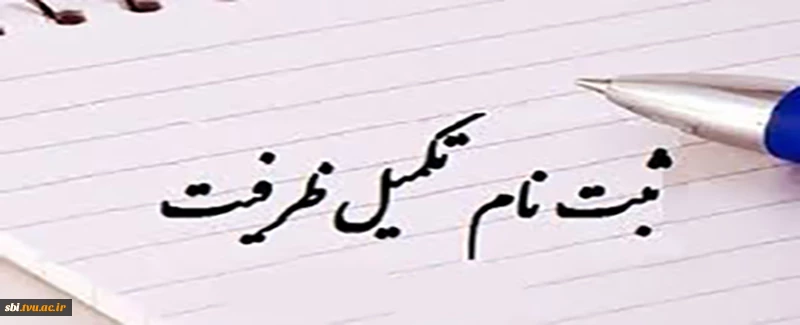 ثبت نام تکمیل ظرفیت
sbi.tvu.ac.ir